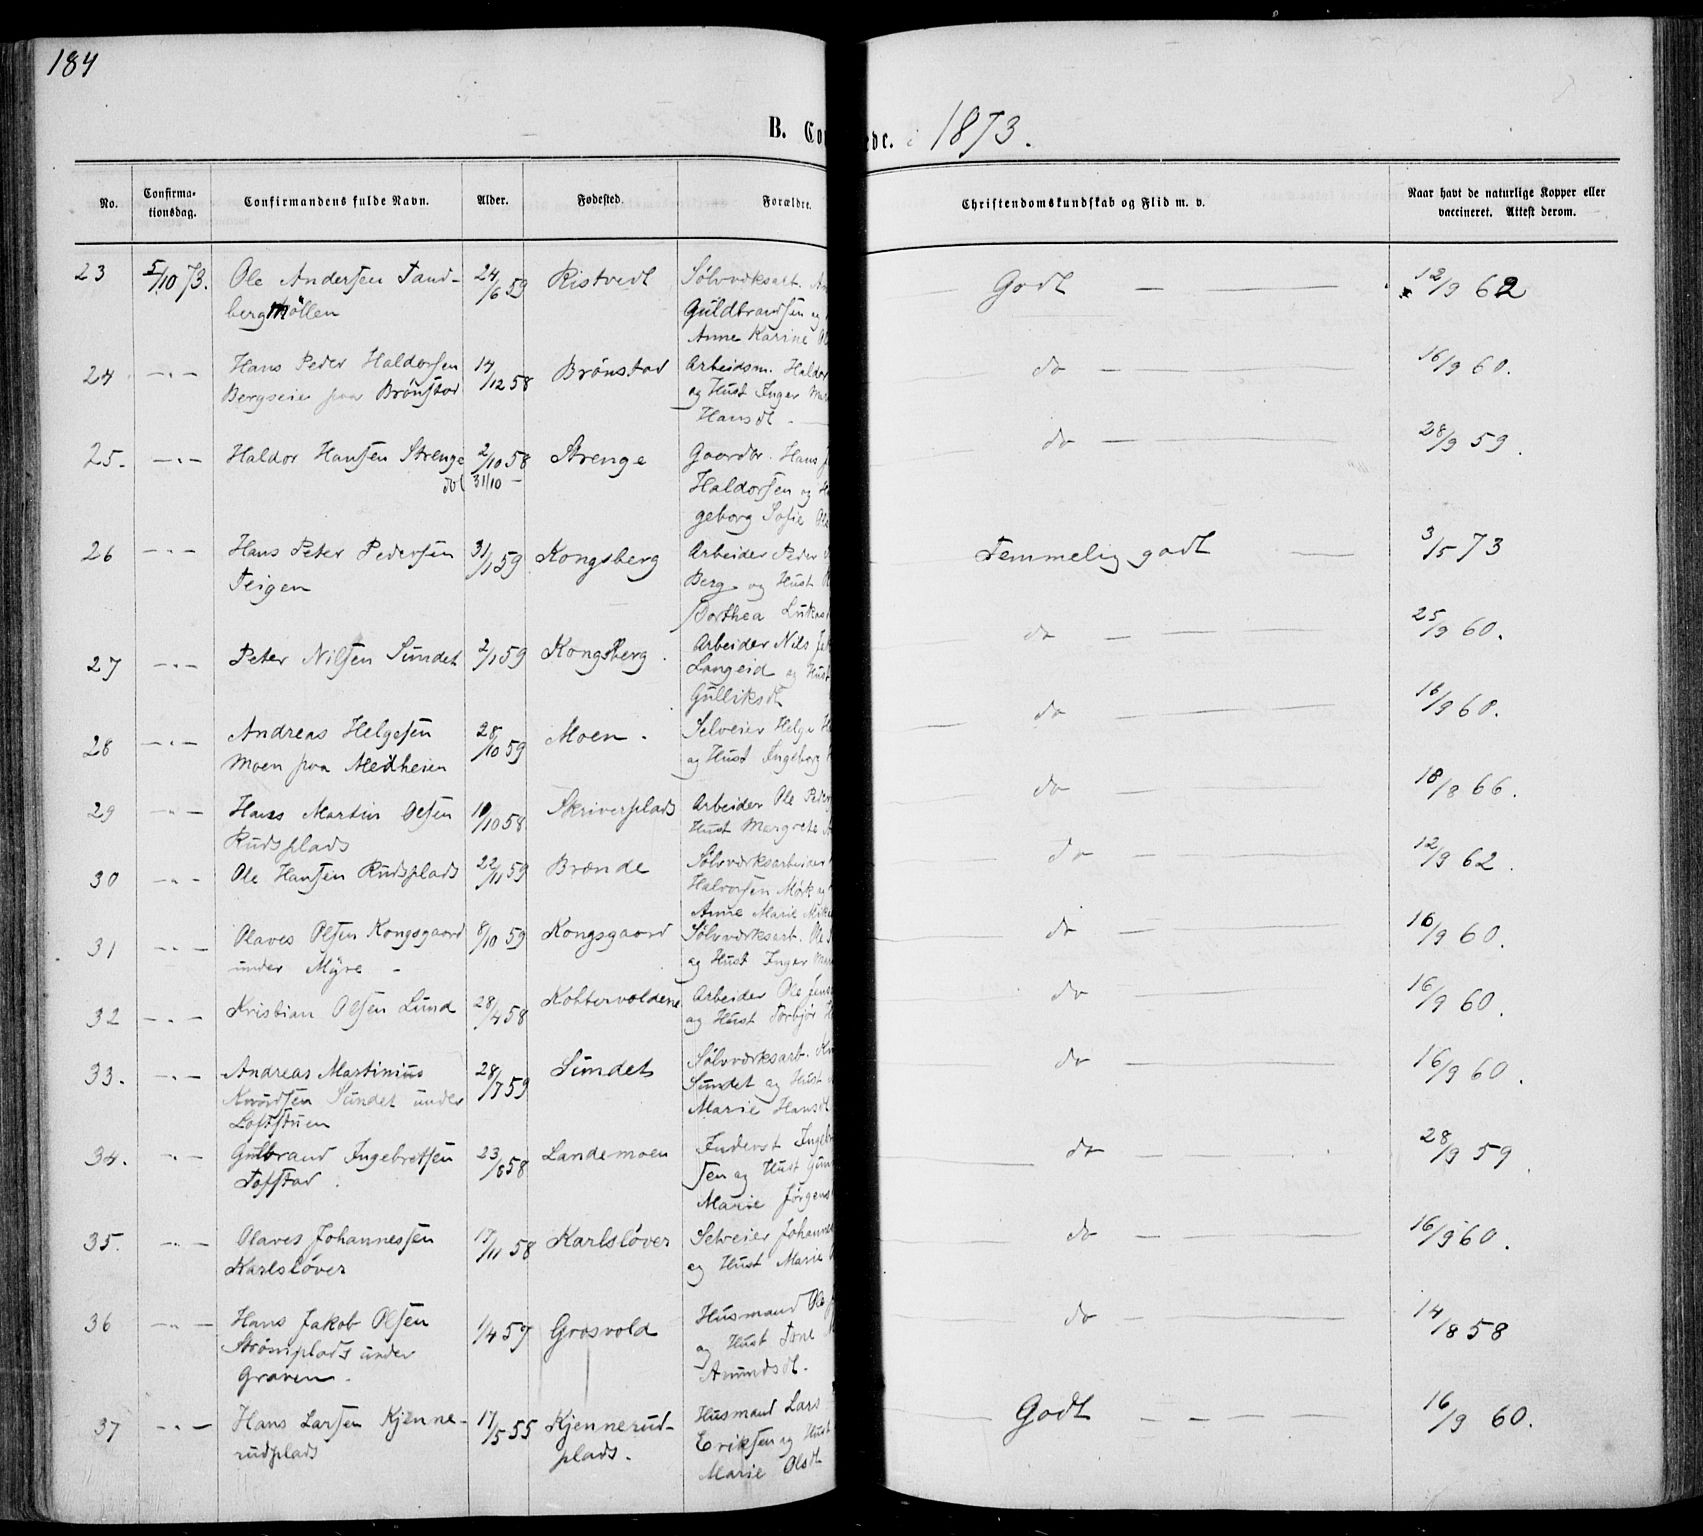 184
B. Co
edc. i 1873.
No.
Confirma-
tionsdag.
Confirmandens fulde Navn.
Alder.
Fødested.
Forældre.
Christendomskundskab og Flid m. v.
Naar havt de naturlige Kopper eller
vaccineret. Attest derom.
23 5/10 73. Ole Andersen Sand- 24/6 59 Ristvedt Sølvværksarb. Godt — — 12/9 62
bergmøllen Guldbrandsen og
Anne Karine
24 -"- Hans Peder Haldorsen 14/12 58 Brønstad Arbeidsm. Haldor do — — 16/9 60.
Bergseie paa Brønstad og Hust Inger
Hansdt. —
25. -"- Haldor Hansen Strenge 2/10 58 Strenge Gaardbr. Hans do — — 28/9 59.
døl 31/10 — Haldorsen og
geborg Sofie Ole
26 -"- Hans Peter Pedersen 31/1 59 Kongsberg Arbeider Peder Temmelig godt — 3/5 73
Teigen Berg og Hust
Dorthea Lukas
27 -"- Peter Nilsen Sundet 2/1 59 Kongsberg. Arbeider Nils do — — 25/9 60.
Langeid og Hust
Gulliksdt
28 -"- Andreas Helgesen 28/10 59 Moen. Selveier Helge do — — 16/9 60.
Moen paa Medheien og Hust Ingeborg
29 -"- Hans Martin Olsen 10/10 58 Skriverplads Arbeider Ole Peder do — — 18/8 66.
Rudsplads Hust Margrete
30 -"- Ole Hansen Rudsplads 22/11 59 Brænde Sølvværksarbeider do — — 12/9 62.
Halvorsen Mørk og
Anne Marie
31 -"- Olaves Olsen Kongsgaard 8/10 59 Kongsgaard Sølvværksarb. Ole do — — 16/9 60.
under Myre - og Hust Inger
32 -"- Kristian Olsen Lund 28/4 58 Kobbervoldene Arbeider Ole Jens do — — 16/9 60.
og Hust Torbjør
33. -"- Andreas Martinius 28/7 59 Sundet Sølvværksarb. do — — 16/9 60.
Knudsen Sundet under Sundet og Hust
Loftstuen Marie Hansdt
34. -"- Gulbrand Ingebretsen 23/8 58 Landemoen Inderst Ingebr do — — 28/9 59.
Tofstad. sen og Hust Gun
Marie Jørgens
35. -"- Olaves Johannessen 17/11 58 Karlsløver Selveier Johannes do — — 16/9 60.
Karlsløver og Hust Marie
36 -"- Hans Jakob Olsen 1/4 59 Grosvold Husmand Ole do — — 14/8 58
Strømplads under og Hust Tone
Graven. Amundsdt.
37 -"- Hans Larsen Kjenne- 17/5 55 Kjennerud- Husmand Lars Godt — — — 16/9 60.
rudplads plads. Eriksen og Hust
Marie Olsdt